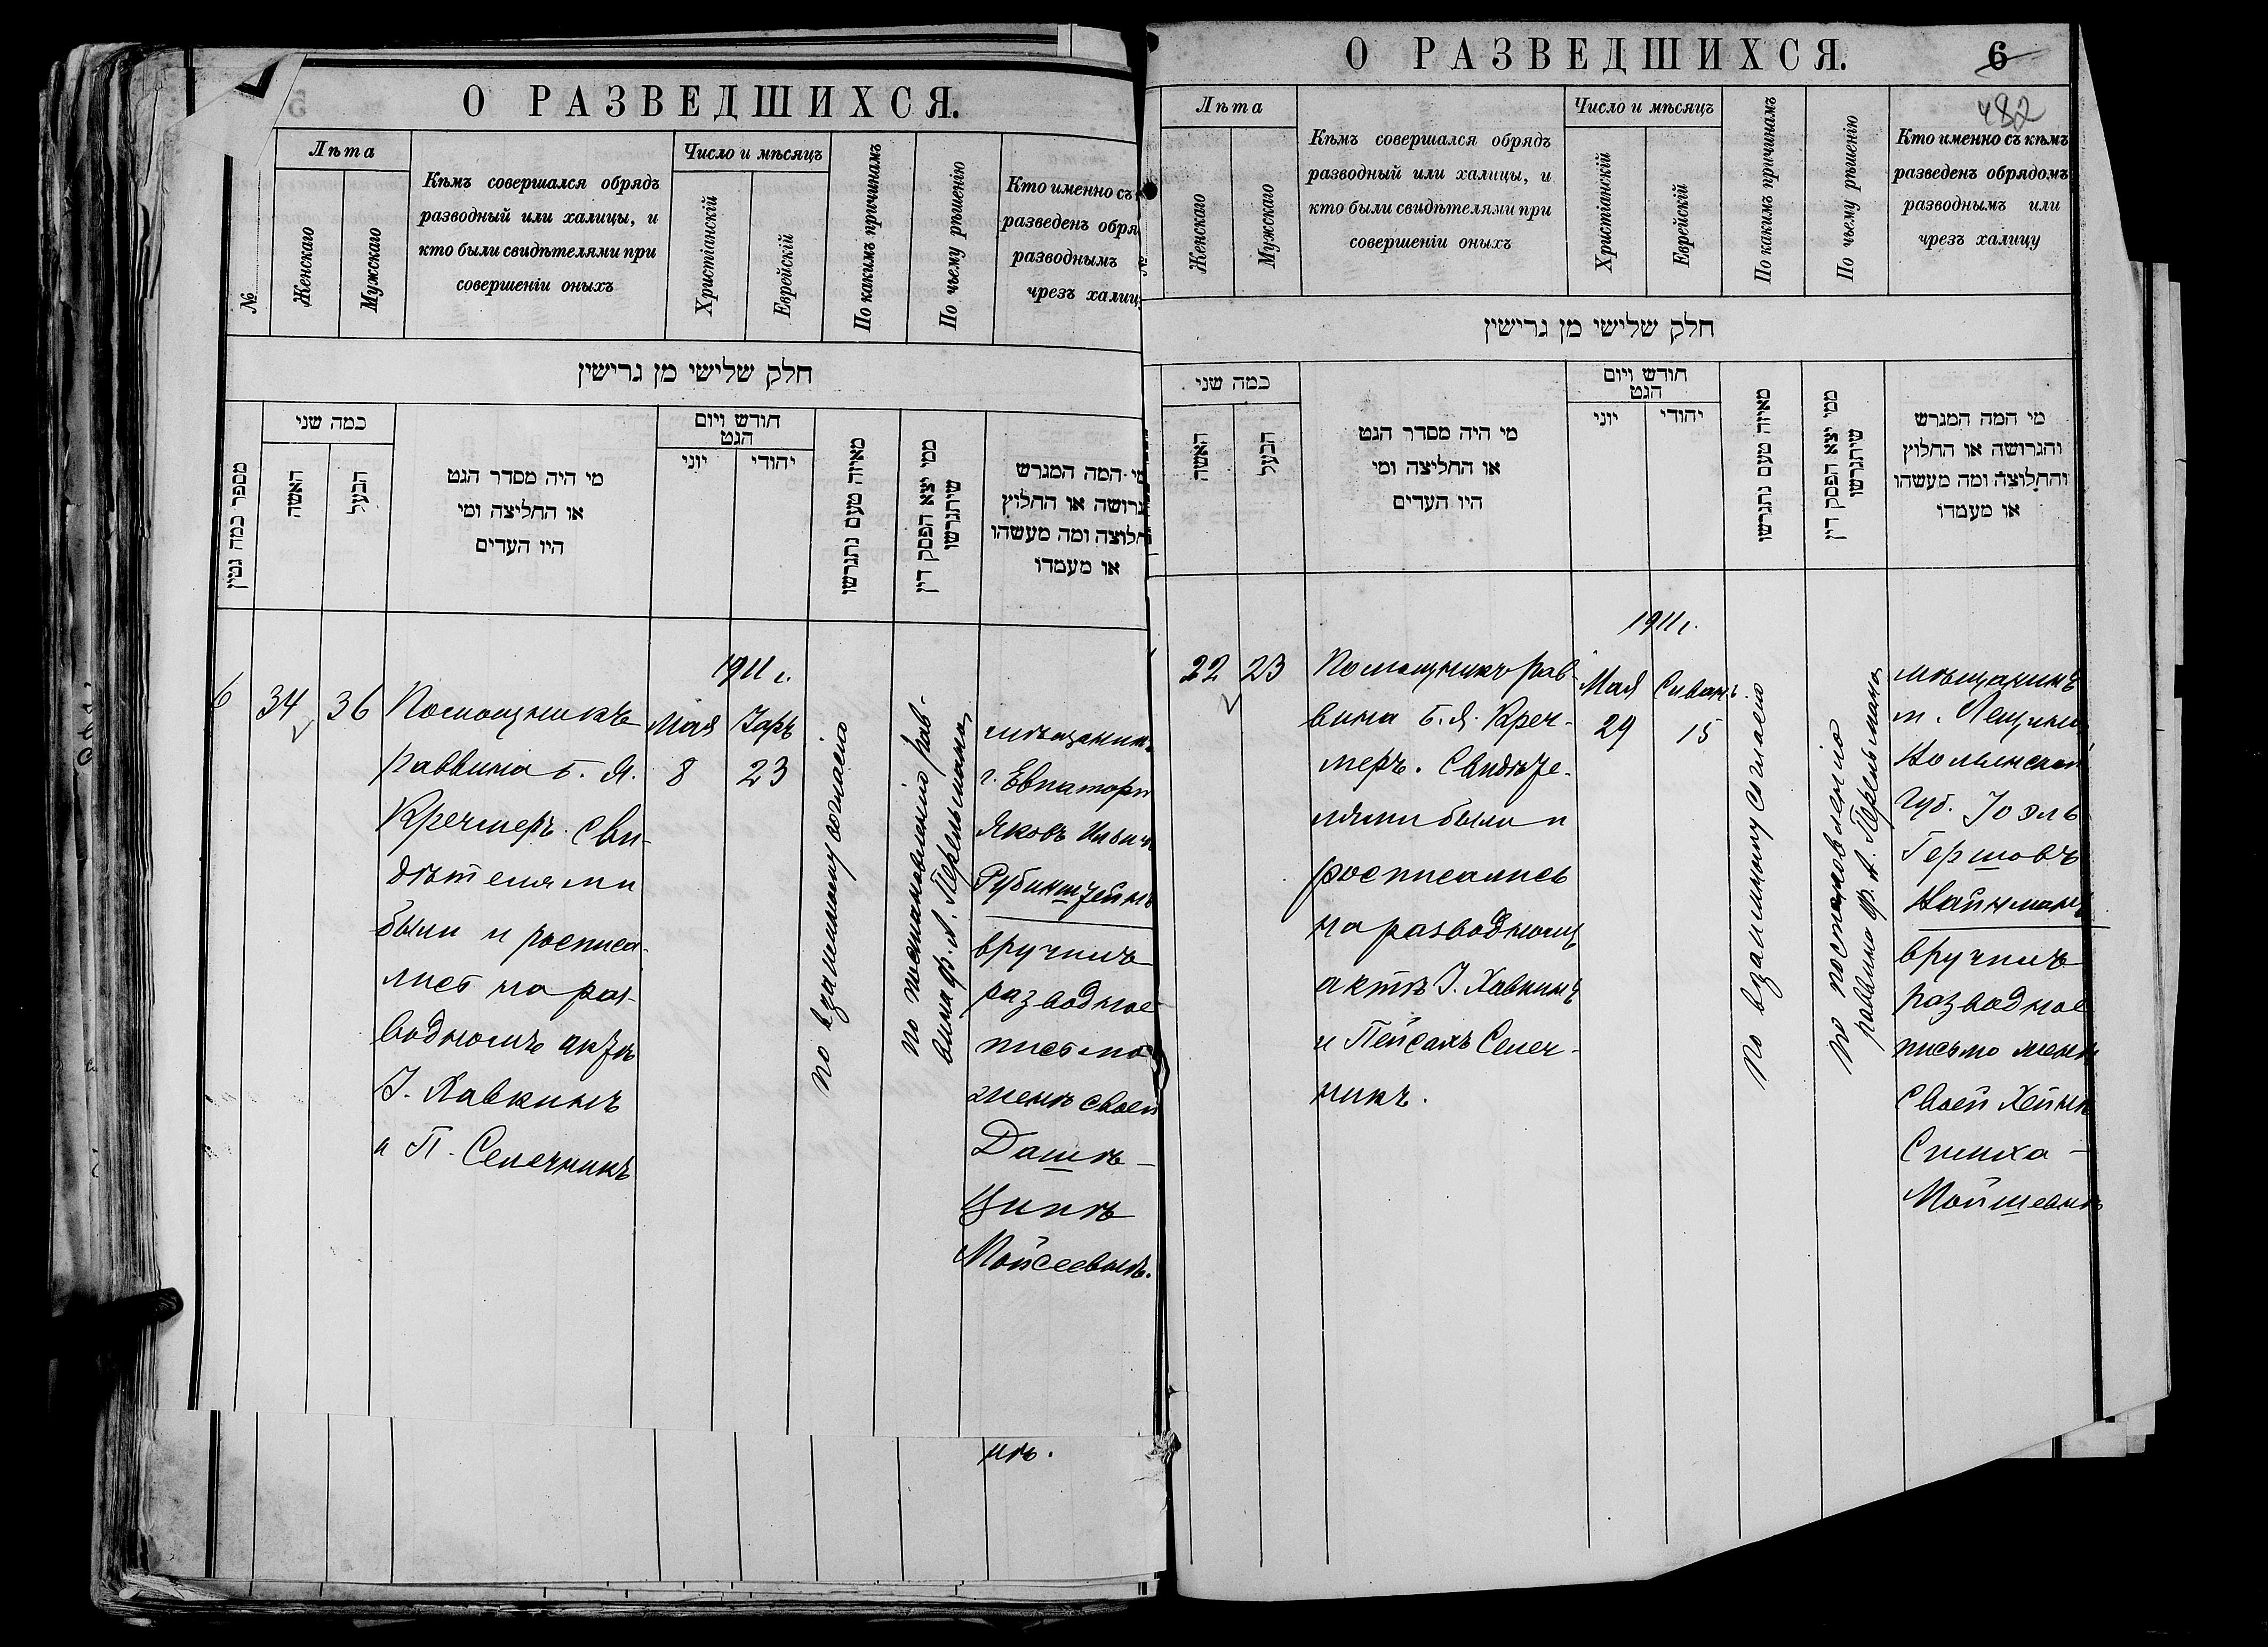 О РАЗВЕДШИХСЯ.
№
Лѣта
Женскаго
Мужскаго
Кѣмъ совершался обрядъ
разводный или халицы, и
кто были свидѣтелями при
совершеніи оныхъ
Число и мѣсяцъ
Христіанскій
Еврейскій
По какимъ причинамъ
По чьему рѣшенію
Кто именно съ
разведенъ обря
разводнымъ
чрезъ халиц
חלק שלישי מן גרישין
מספר כמה גטין
כמה שני
האשה
הבעל
מי היה מסדר הגט
או החליצה ומי
היו העדים
חודש ויום
הגט
יוני
יהודי
מאיזה טעם נתגרשו
ממי יצא הפסק דין
שיתגרשו
מי המה המגרש
גרושה או החלוץ
חלוצה ומה מעשהו
או מעמדו
6
34
36
Помощникъ
раввина Б. Я.
Кречмеръ. Сви-
дѣтелями
были и росписа-
лись на раз-
водномъ актѣ
І. Хавкинъ
и П. Селечникъ
1911 г.
Мая
8
Іаръ
23
по взаимному согласію
по постановленію рав-
вина Ф. А. Перельмана
мѣщанинъ
г. Евпаторіи
Яковъ
Рубинштейнъ
вручилъ
разводное
письмо
женѣ своей
Дашѣ-
Ципѣ
Мойсеевнѣ.
О РАЗВЕДШИХСЯ.
6
482
Лѣта
Женскаго
Мужскаго
Кѣмъ совершался обрядъ
разводный или халицы, и
кто были свидѣтелями при
совершеніи оныхъ
Число и мѣсяцъ
Христіанскій
Еврейскій
По какимъ причинамъ
По чьему рѣшенію
Кто именно съ кѣмъ
разведенъ обрядомъ
разводнымъ или
чрезъ халицу
חלק שלישי מן גרישין
כמה שני
האשה
הבעל
מי היה מסדר הגט
או החליצה ומי
היו העדים
חודש ויום
הגט
יוני
יהודי
מאיזה טעם נתגרשו
ממי יצא הפסק דין
שיתגרשו
מי המה המגרש
והגרושה או החלוץ
והחלוצה ומה מעשהו
או מעמדו
22
23
Помощникъ рав-
вина Б. Я. Креч-
меръ. Свидѣте-
лями были и
росписались
на разводномъ
актѣ І. Хавкинъ
и Пейсахъ Селеч-
никъ.
1911 г.
Мая
29
Сиванъ
15
по взаимному согласію
по постановленію
раввина Ф. А. Перельмана
мѣщанинъ
м.
Волынской
губ. Іоэль
Гершовъ
Вайнманъ
вручилъ
разводное
письмо женѣ
своей Хейнѣ
Симха-
Мойшевнѣ